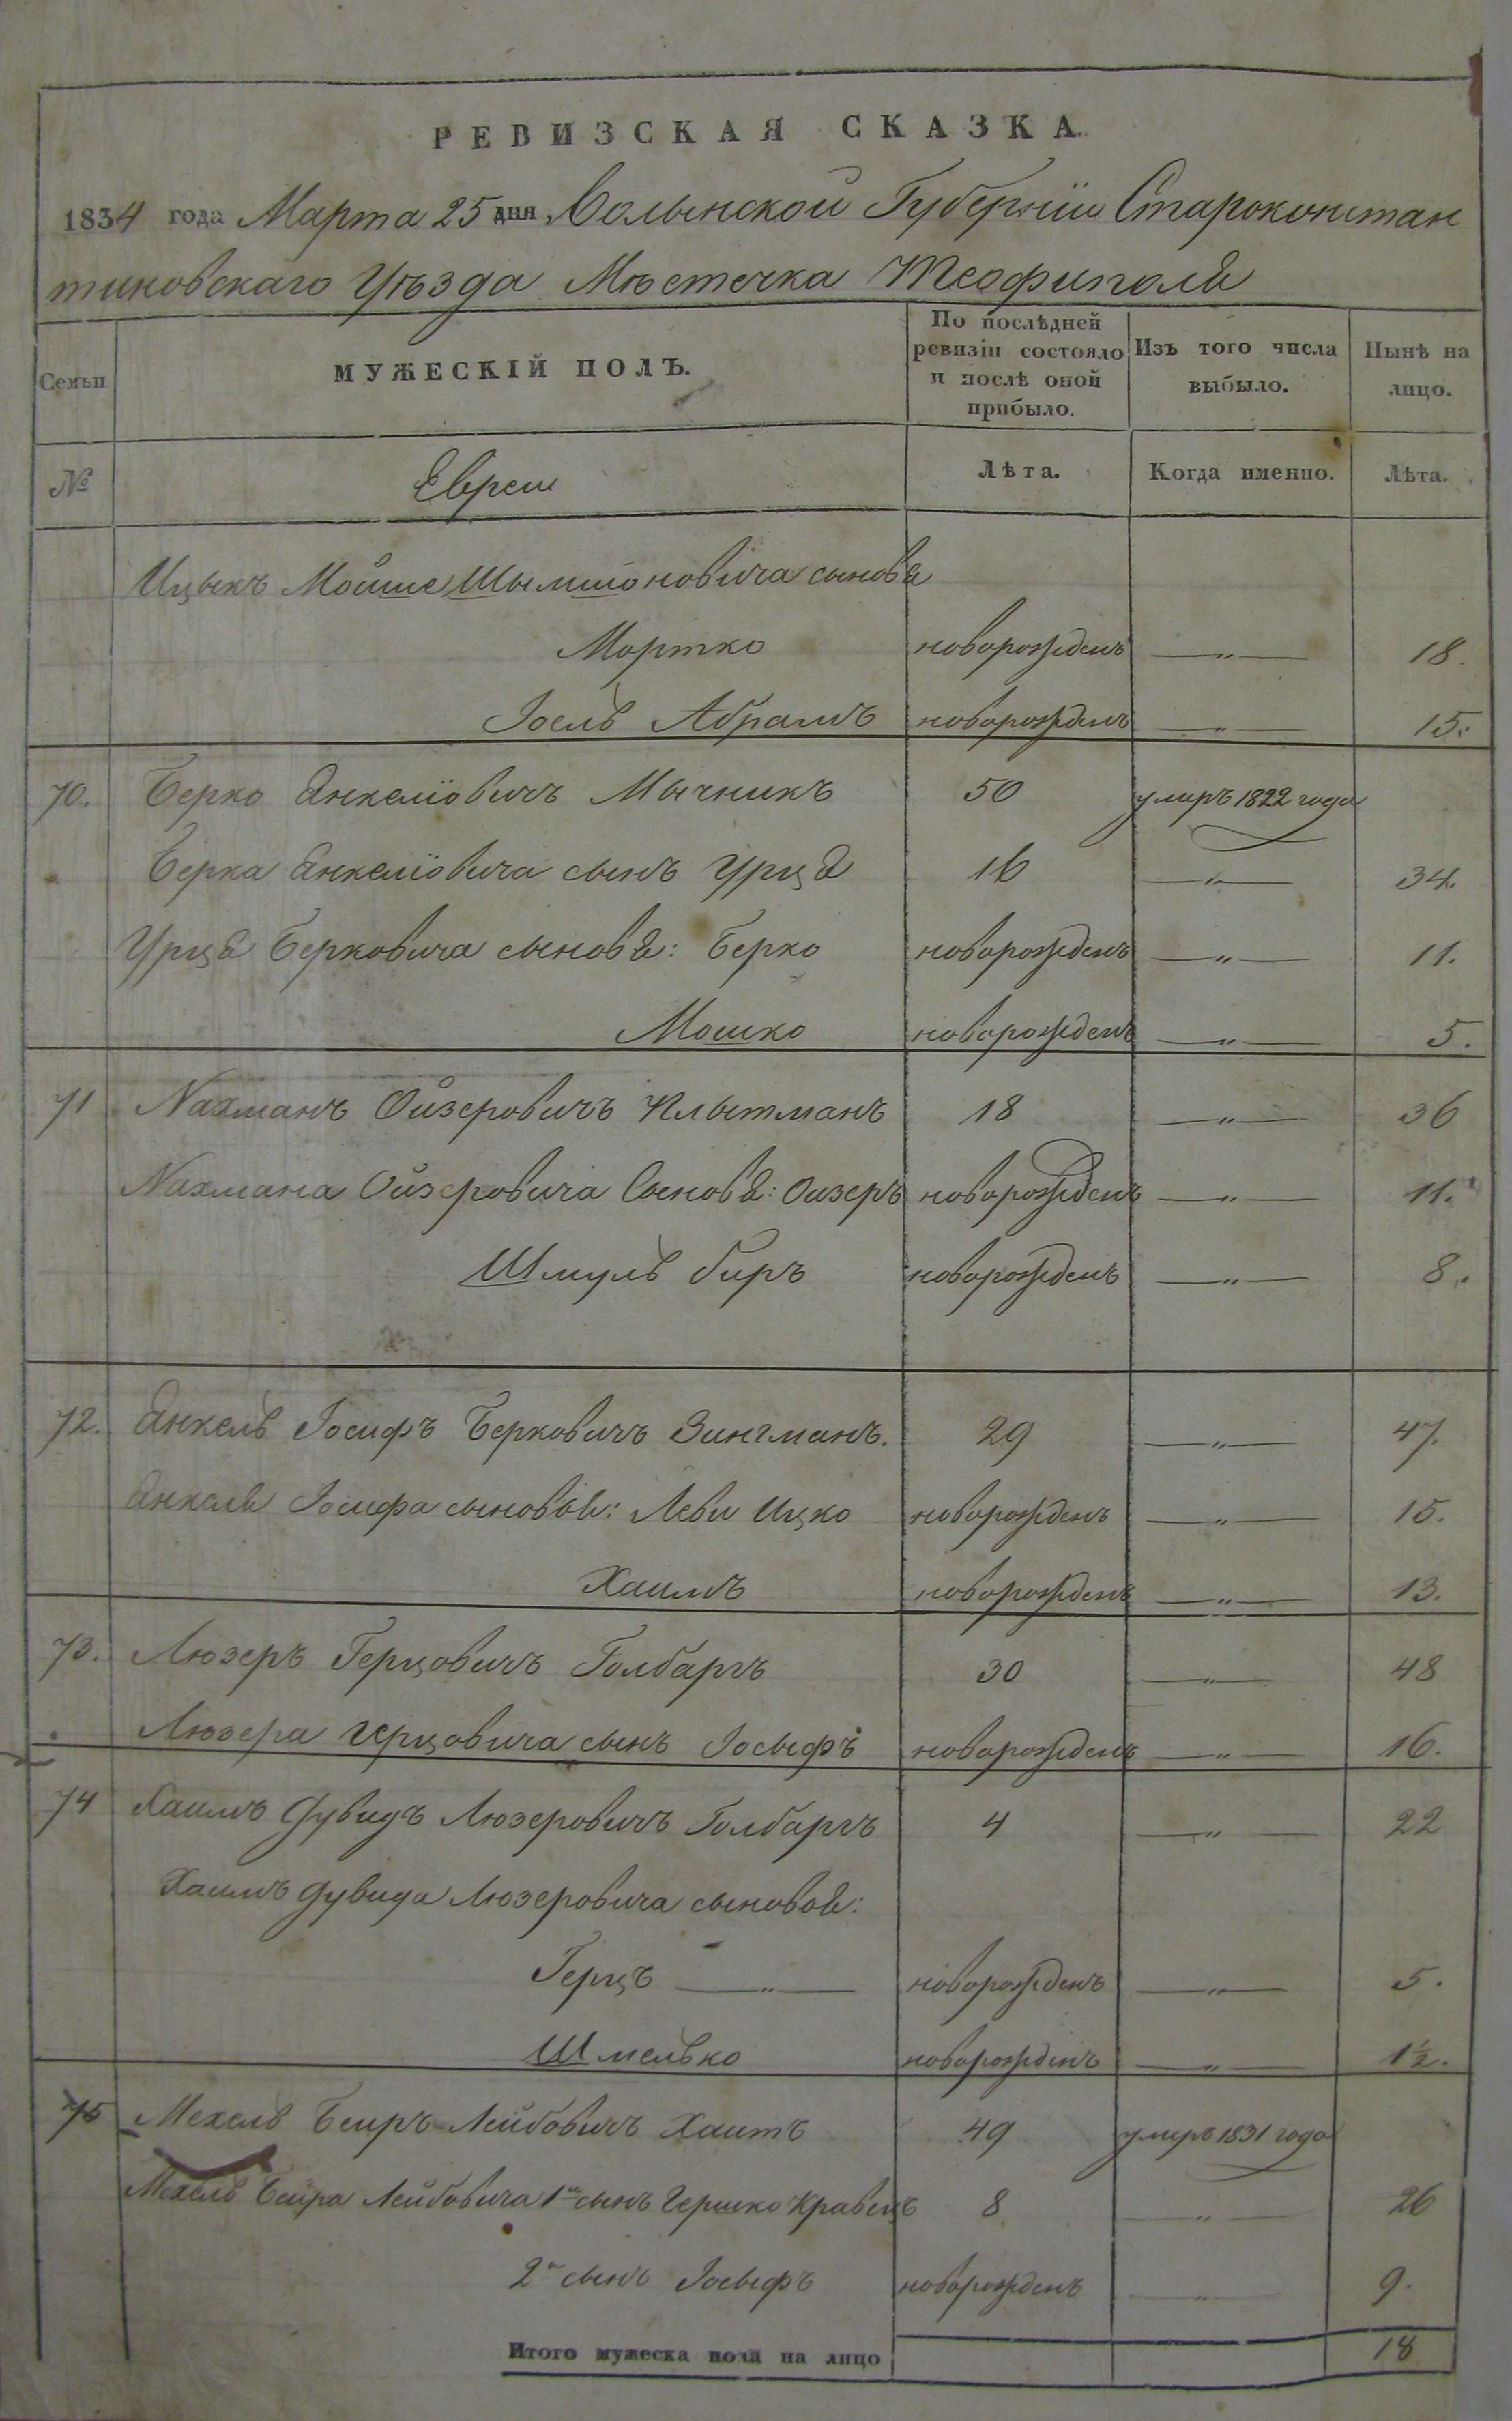 РЕВИЗСКАЯ СКАЗКА.
1834 года Марта 25 дня Волынской Губерніи Староконстан
тиновскаго Уѣзда Мѣстечка Теофиполя
Семьи МУЖЕСКІЙ ПОЛЪ. По послѣдней ревизіи состояло и послѣ оной прибыло. Изъ того числа выбыло. Нынѣ на лицо.
№ Евреи Лѣта. Когда именно. Лѣта.
Ицыкъ Мойше Шымшоновича сыновя
Мортко новорожденъ —„— 18.
Іосль Абрамъ новорожденъ —„— 15.
70. Берко Янкеліовичъ Мычникъ 50 умиръ 1822 года
Берка Янкеліовича сынъ Урця 16 —„— 34.
Урця Берковича сыновя: Берко новорожденъ —„— 11.
Мошко новорожденъ —„— 5.
71 Нахманъ Ойзеровичъ Плытманъ 18 —„— 36
Нахмана Ойзеровича Сыновя: Оизеръ новорожденъ —„— 11.
Шмуль биръ новорожденъ —„— 8.
72. Янкель Іосифъ Берковичъ Зингманъ. 29 —„— 47.
Янкеля Іосифа сыновья: Леви Ицко новорожденъ —„— 15.
Хаимъ новорожденъ —„— 13.
73. Люзеръ Герцовичъ Голбаргъ 30 —„— 48
Люзера Герцовича сынъ Іосыфъ новорожденъ —„— 16.
74 Хаимъ Дувидъ Люзеровичъ Голбаргъ 4 —„— 22
Хаимъ Дувида Люзеровича сыновья:
Герцъ —„— новорожденъ —„— 5.
Шмелько новорожденъ —„— 1½.
75 Мехель Беиръ Лейбовичъ Хаитъ 49 умиръ 1831 года
Мехель Беира Лейбовича 1й сынъ Гершко Кравецъ 8 —„— 26
2й сынъ Іосыфъ новорожденъ —„— 9.
Итого мужеска пола на лицо 18